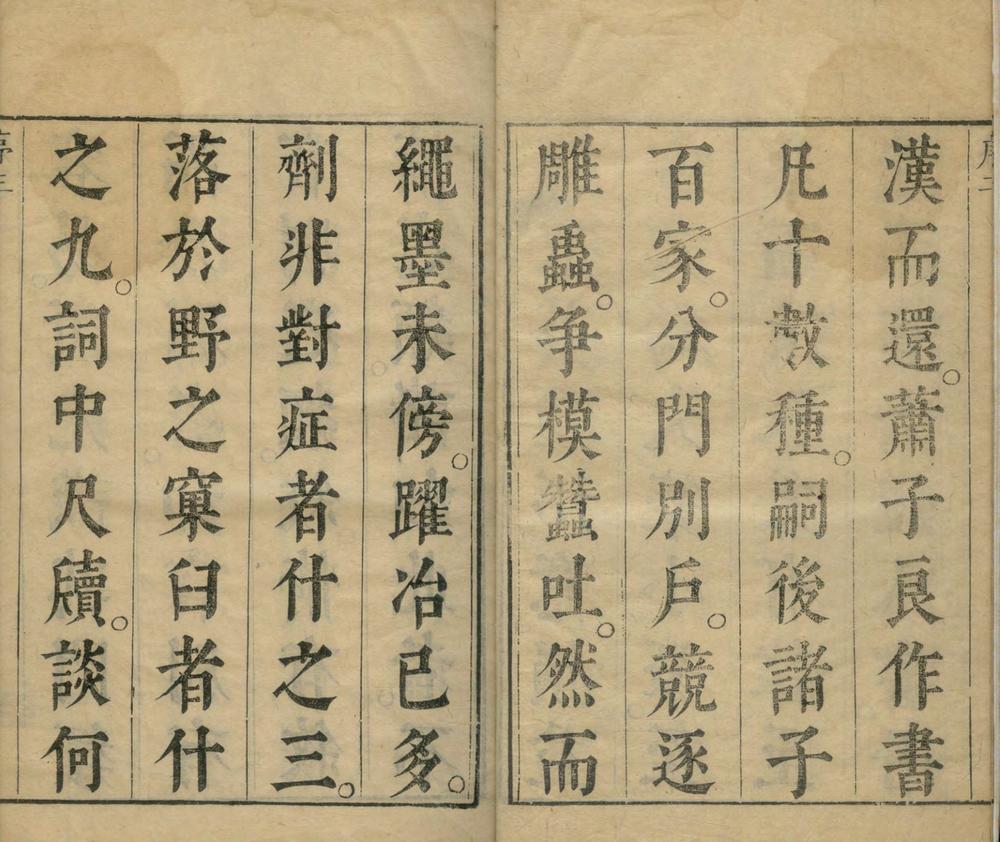 漢而還。蕭子良作書
凡十數種。嗣後諸子
百家。分門別戶。競逐
雕蟲。争模蠶吐。然而
繩墨未傍。躍冶已多。
劑非對症者什之三。
落於野之窠臼者什
之九。詞中尺牘。談何